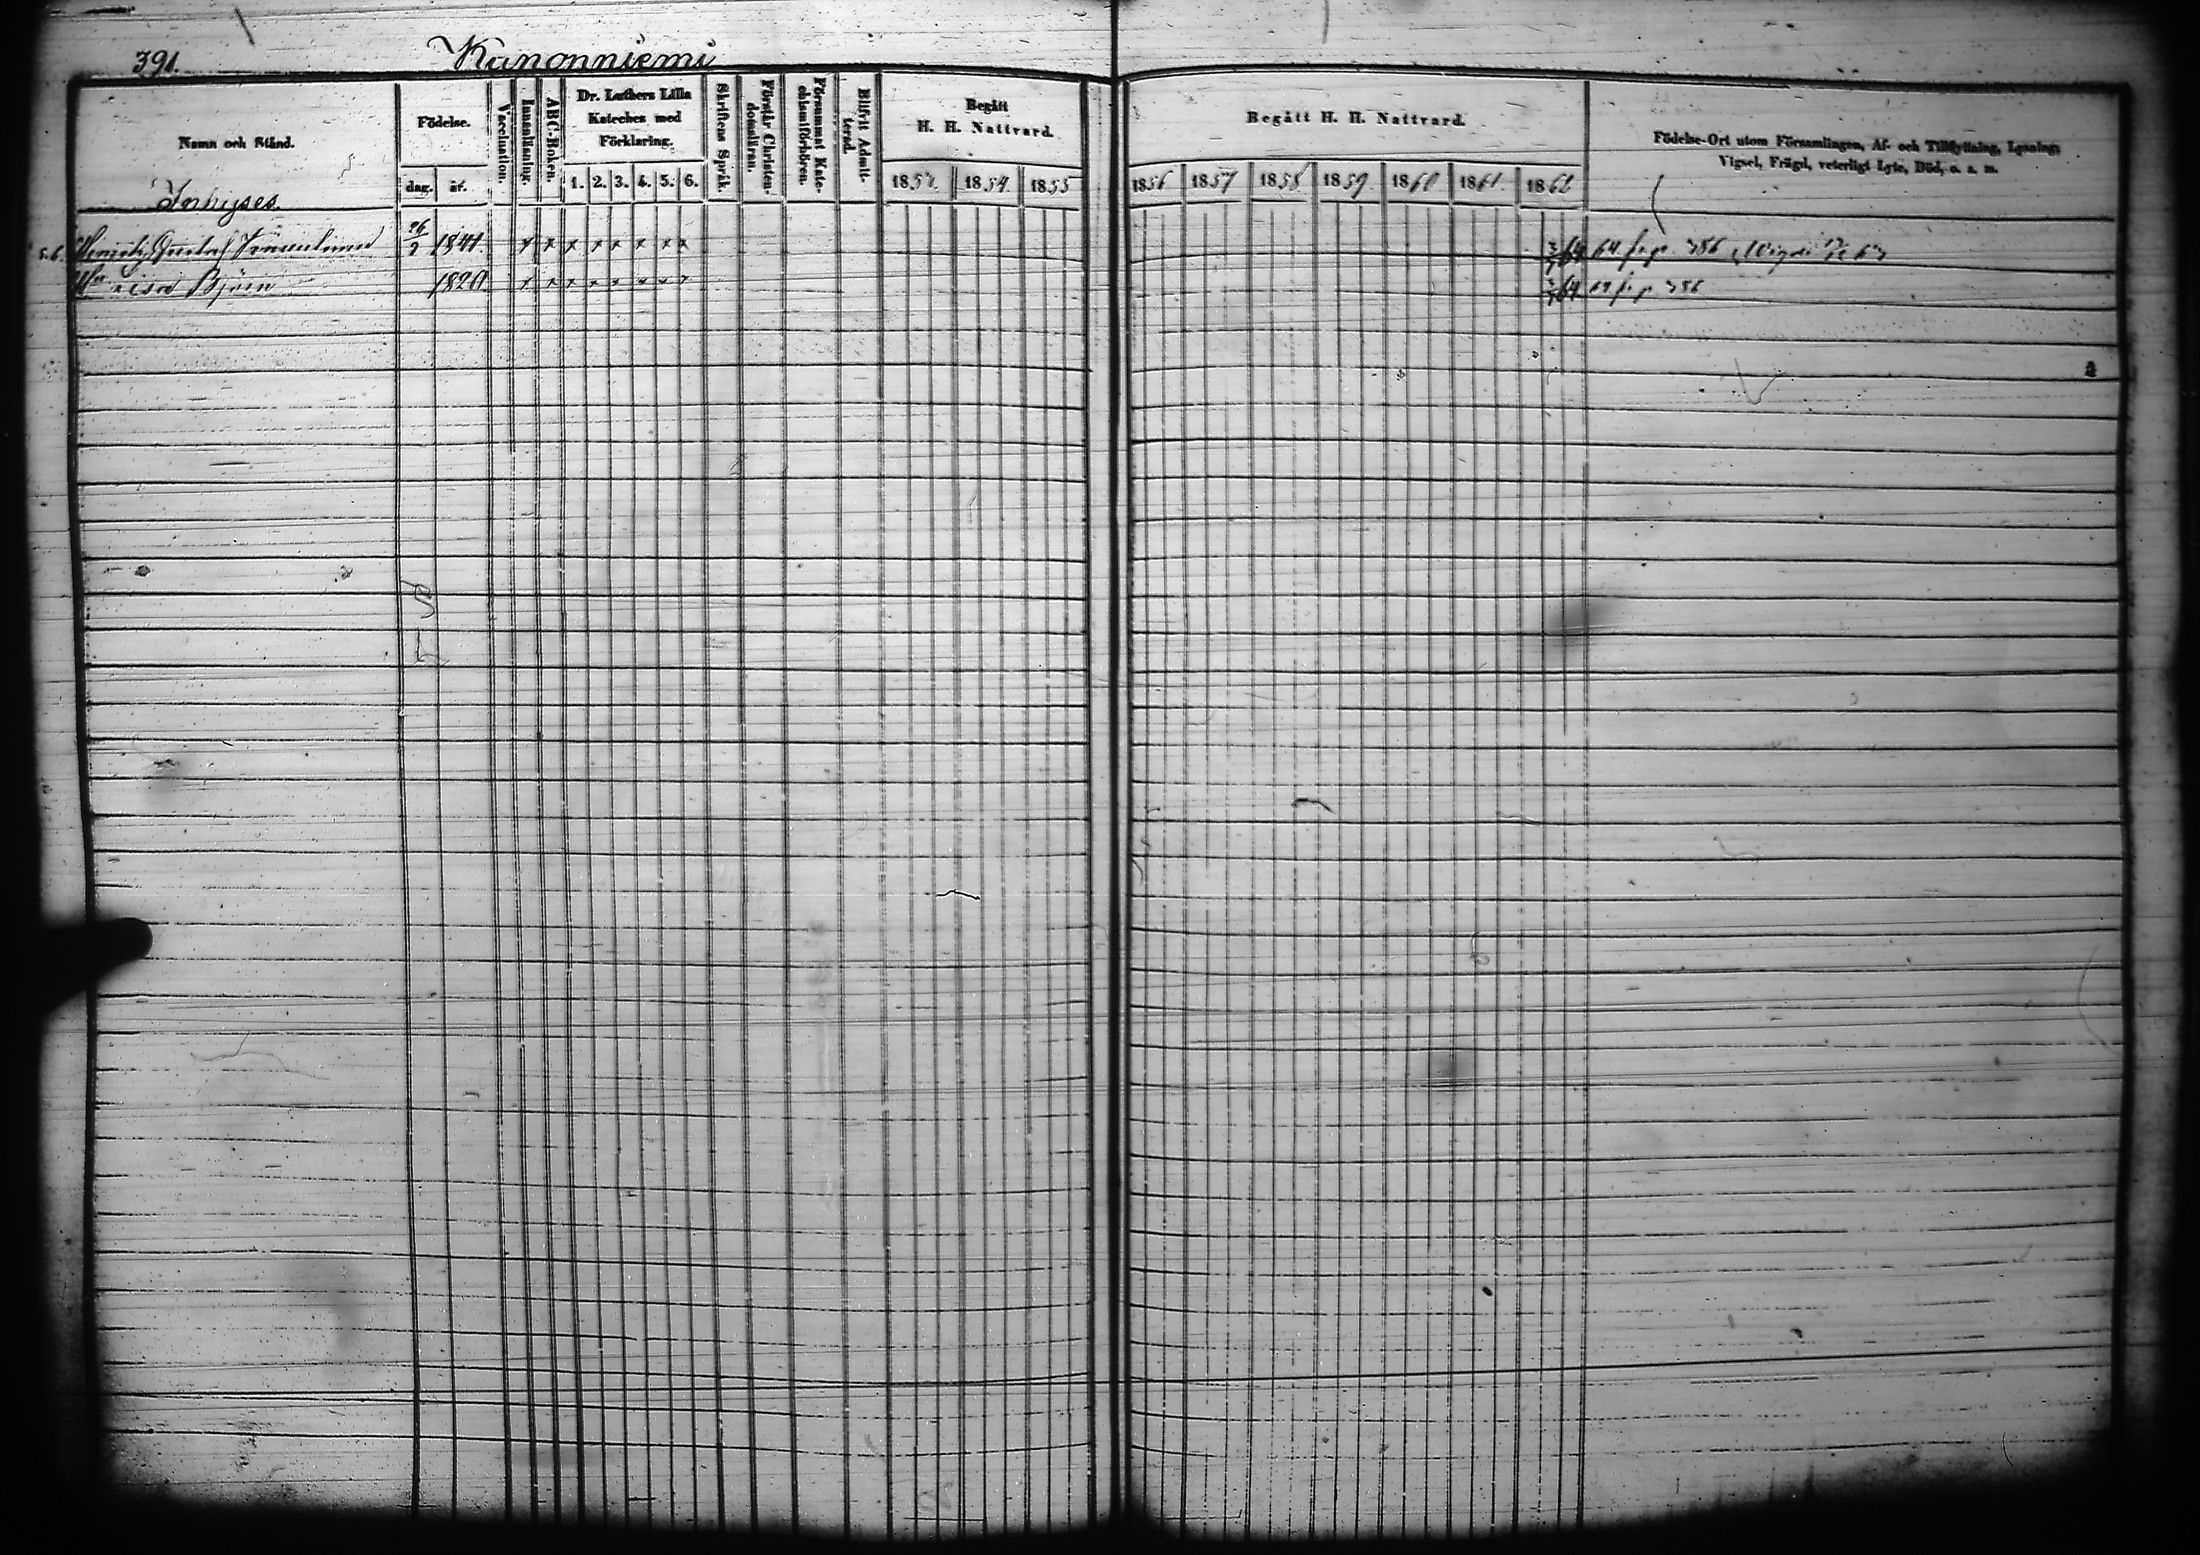 391. Kanonniemi
Namn och Stånd.
Inhyses
Födelse.
dag. år.
Vaccination.
Innanläsning.
ABC-Boken.
Dr. Luthers Lilla
Kateches med
Förklaring.
1. 2. 3. 4. 5. 6.
Skriftens Språk.
Förstår Christendomsläran.
Försummat Katechismiförhören.
Blifvit Admitterad.
Begått
H. H. Nattvard.
1854. 1855
Begått H. H. Nattvard.
1856 1857 1858 1859 1860 1861 1862
Födelse-Ort utom Församlingen, Af- och Tillflyttning, Lysning,
Vigsel, Frägd, veterligt Lyte, Död, o. s. m.
Gustaf 26/2 1841 x x x x x x x x 64 fr. p. 386
Björn 1820 x x x x x x x x 64 fr. p. 386